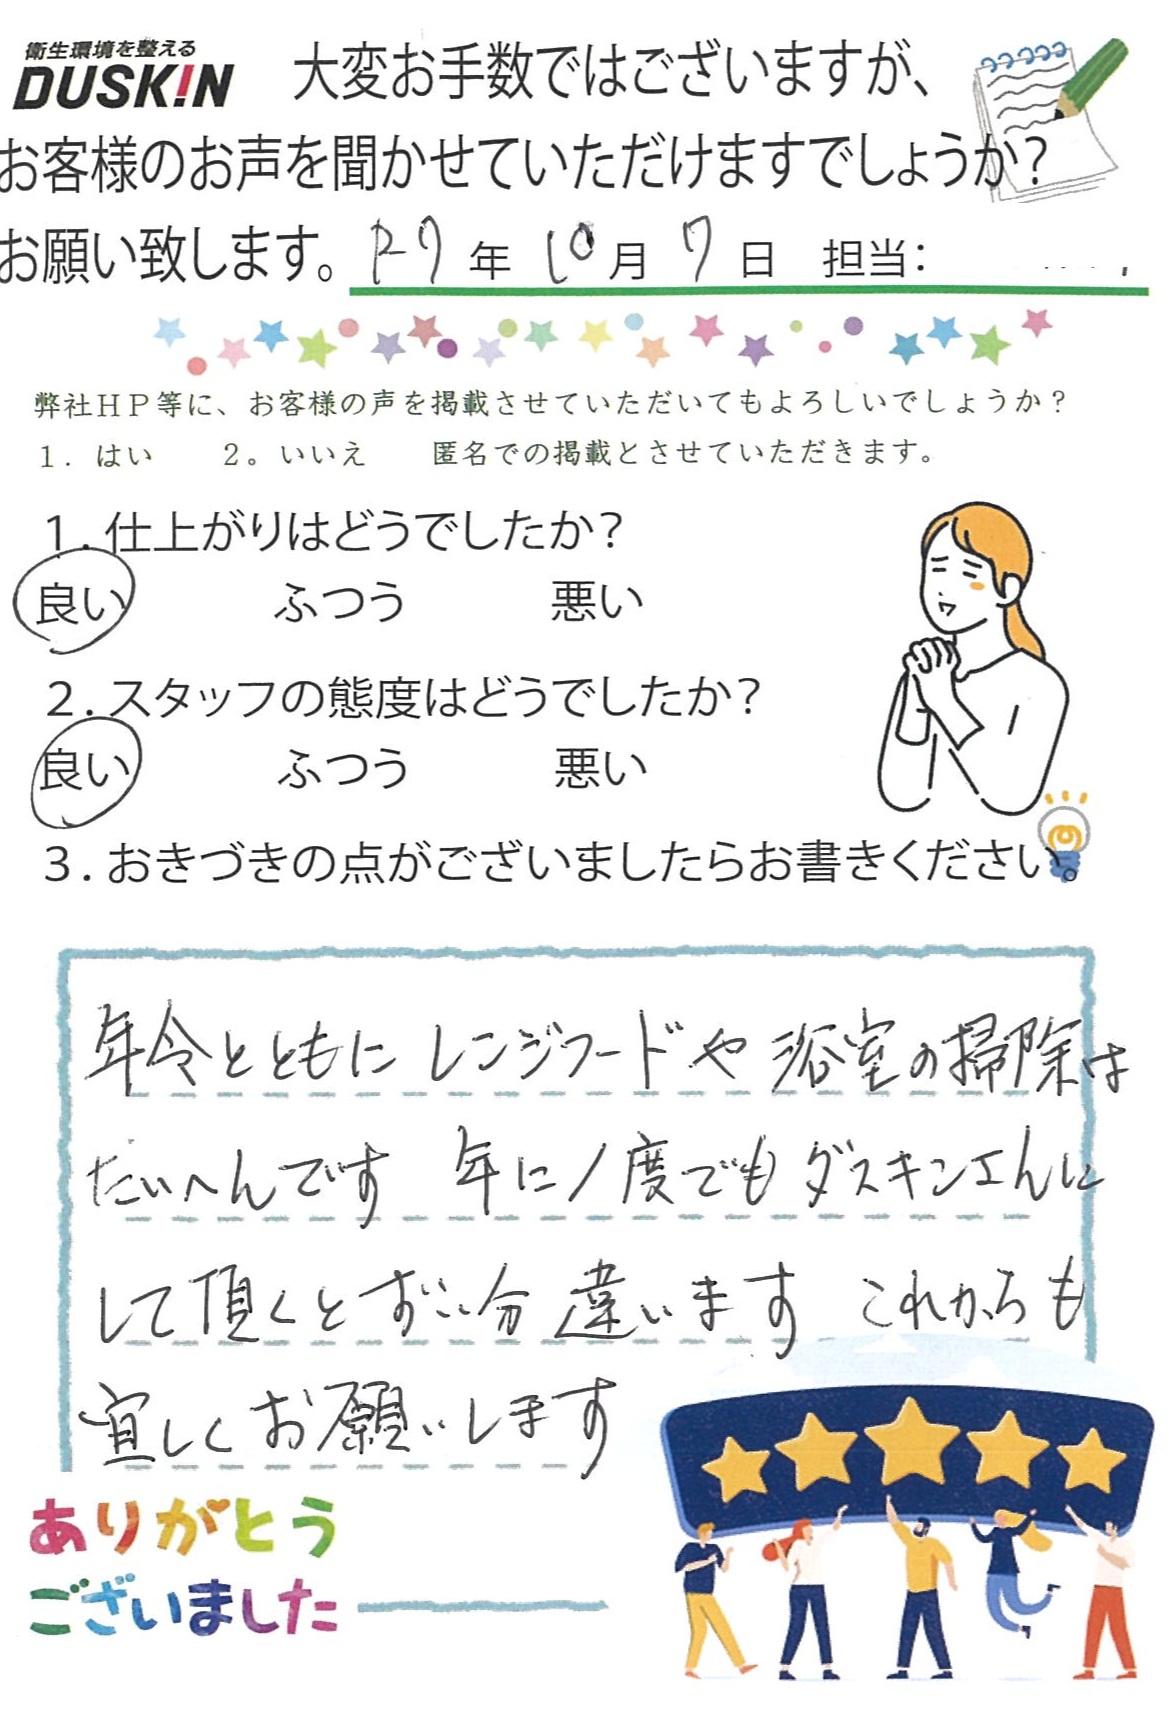 衛生環境を整える
DUSKIN
大変お手数ではございますが、
お客様のお声を聞かせていただけますでしょうか？
お願い致します。 R7年 10月 7日 担当：
弊社ＨＰ等に、お客様の声を掲載させていただいてもよろしいでしょうか？
１．はい ２。いいえ 匿名での掲載とさせていただきます。
１．仕上がりはどうでしたか？
良い ふつう 悪い
２．スタッフの態度はどうでしたか？
良い ふつう 悪い
３．おきづきの点がございましたらお書きください。
年令とともに レンジフードや 浴室の掃除は
たいへんです 年に1度でも ダスキンさんに
して頂くと ずい分 違います これからも
宜しく お願いします
ありがとう
ございました